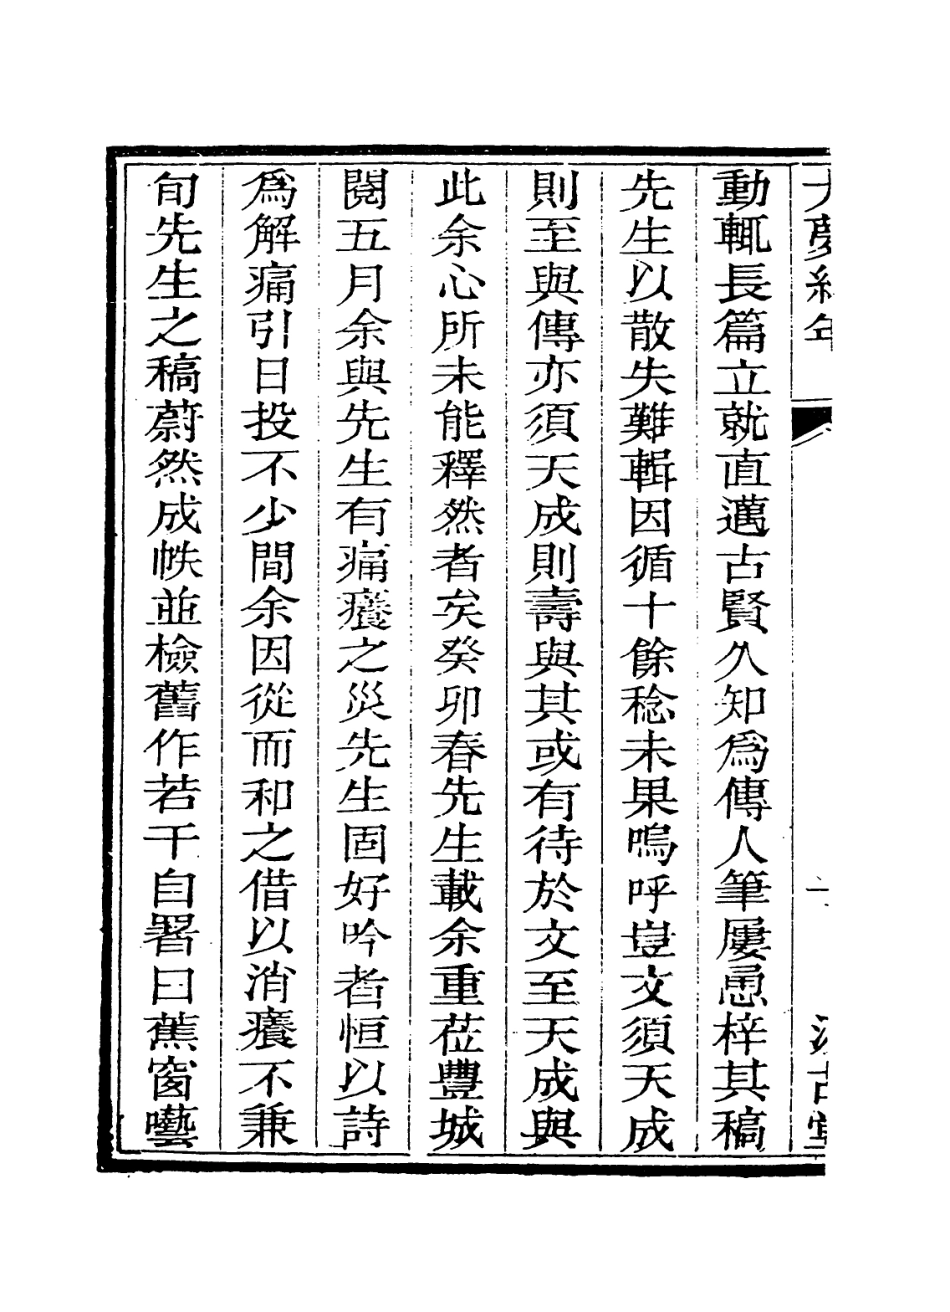 大夢紀年
動輒長篇立就直邁古賢久知爲傳人筆屢慂梓其稿
先生以散失難輯因循十餘稔未果嗚呼豈文須天成
則至與傳亦須天成則壽與其或有待於文至天成與
此余心所未能釋然者矣癸卯春先生載余重莅豐城
閱五月余與先生有痛癢之災先生固好吟者恒以詩
爲解痛引日投不少間余因從而和之借以消癢不兼
旬先生之稿蔚然成帙並檢舊作若干自署曰蕉窗囈